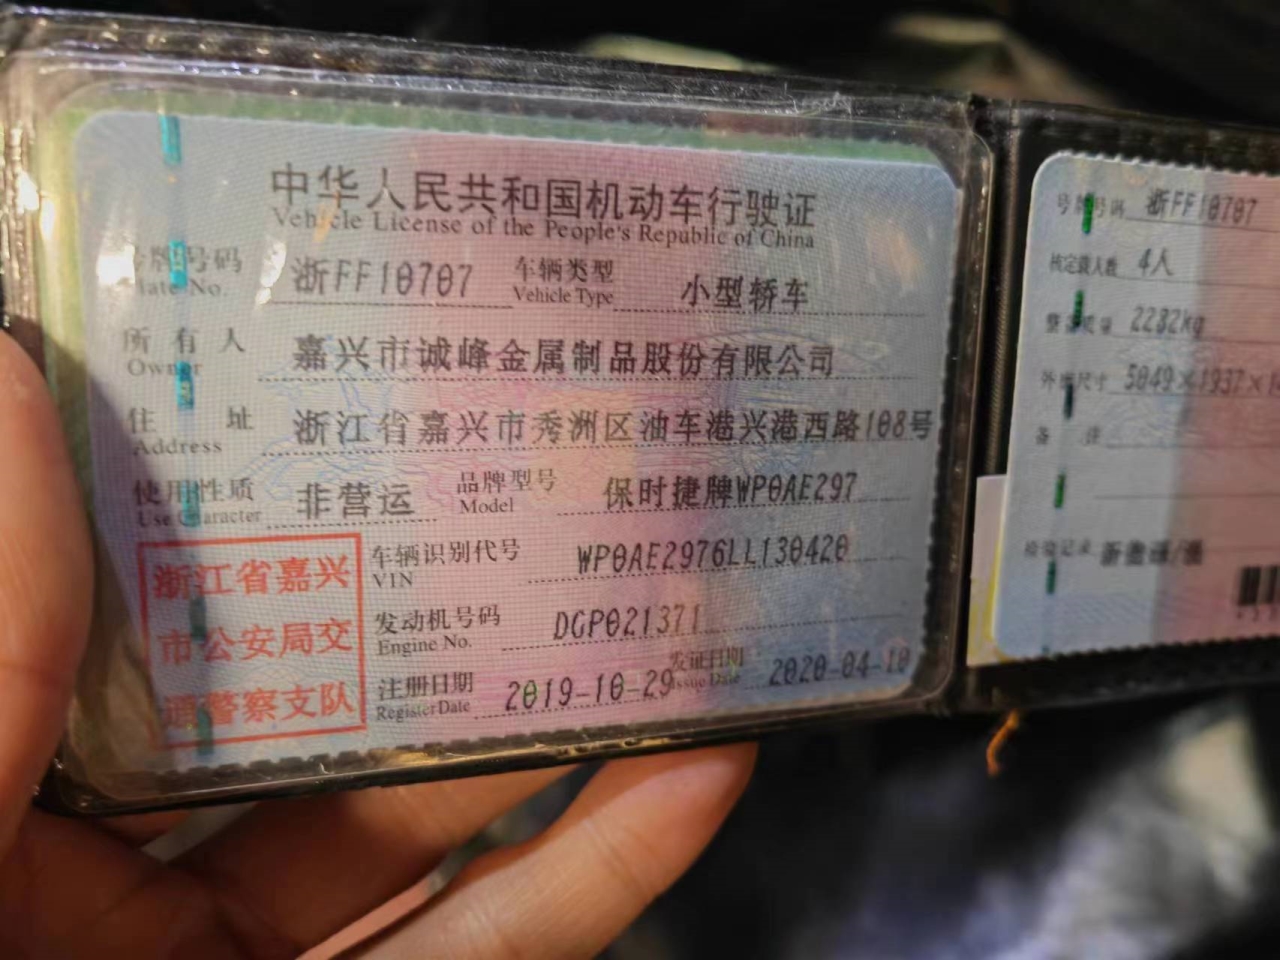 中华人民共和国机动车行驶证
Vehicle License of the People's Republic of China
号牌号码 浙FF10707 车辆类型 小型轿车
Plate No. Vehicle Type
所有人 嘉兴市诚峰金属制品股份有限公司
Owner
住址 浙江省嘉兴市秀洲区油车港兴港西路108号
Address
使用性质 非营运 品牌型号 保时捷牌WP0AE297
Use Character Model
浙江省嘉兴
市公安局交
通警察支队
车辆识别代号 WP0AE2976LL130420
VIN
发动机号码 DGP021371
Engine No.
注册日期 2019-10-29 发证日期 2020-04-10
Register Date Issue Date
号牌号码 浙FF10707
核定载人数 4人
整备质量 2282kg
外廓尺寸 5049×1937×
备注
检验记录